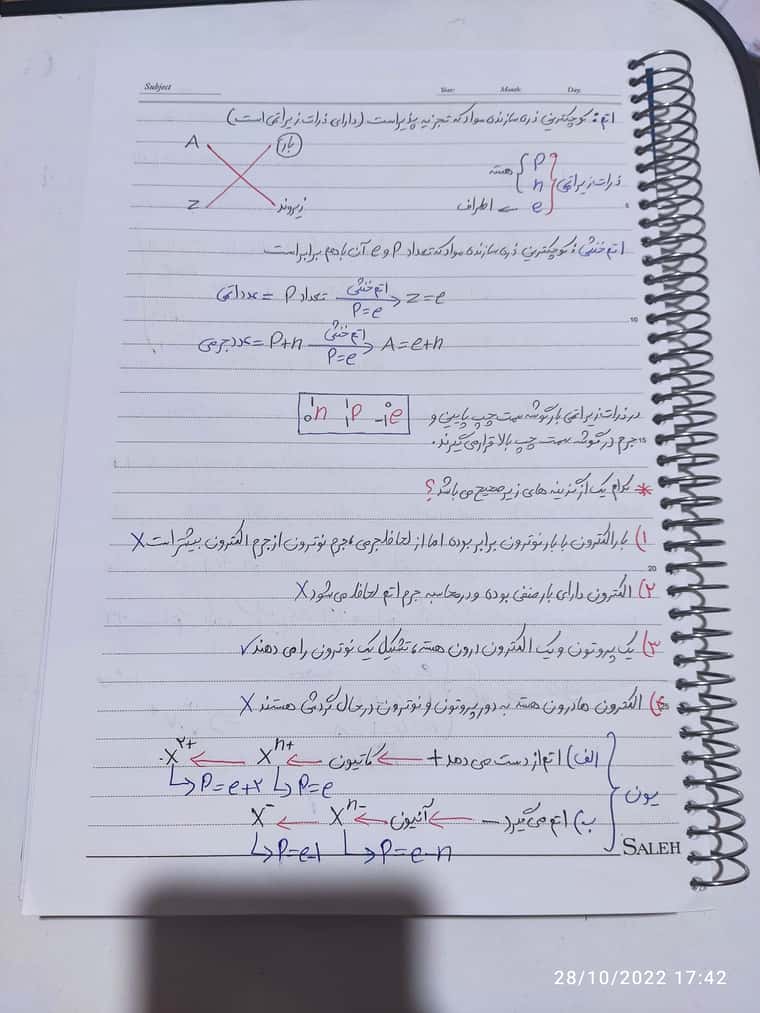 Subject Year: Month: Day:
اتم: کوچکترین ذره سازنده مواد که تجزیه پذیر است (دارای ذرات زیراتمی است)
A بار
Z زیروند
ذرات زیراتمی
P
n
هسته
e → اطراف
5
اتم خنثی: کوچکترین ذره سازنده مواد که تعداد P و e آن با هم برابر است
عدداتمی = تعداد P اتم خنثی P=e → Z=e
10
عدد جرمی = P+n اتم خنثی P=e → A=e+n
در ذرات زیراتمی بار گوشه سمت چپ پایین و
15
جرم در گوشه سمت چپ بالا قرار می گیرند.
¹₀n ¹₁P ⁰₋₁e
* کدام یک از گزینه های زیر صحیح می باشد؟
۱) بار الکترون با بار نوترون برابر بوده اما از لحاظ جرمی، جرم نوترون از جرم الکترون بیشتر است X
20
۲) الکترون دارای بار منفی بوده و در محاسبه جرم اتم لحاظ می شود X
۳) یک پروتون و یک الکترون درون هسته، تشکیل یک نوترون را می دهند ✓
۴) الکترون ها درون هسته به دور پروتون و نوترون در حال گردش هستند X
یون
الف) اتم از دست می دهد + ← کاتیون ← Xⁿ⁺ ← X²⁺
P=e P=e+2
ب) اتم می گیرد − ← آنیون ← Xⁿ⁻ ← X⁻
P=e-n P=e-1
SALEH
28/10/2022 17:42